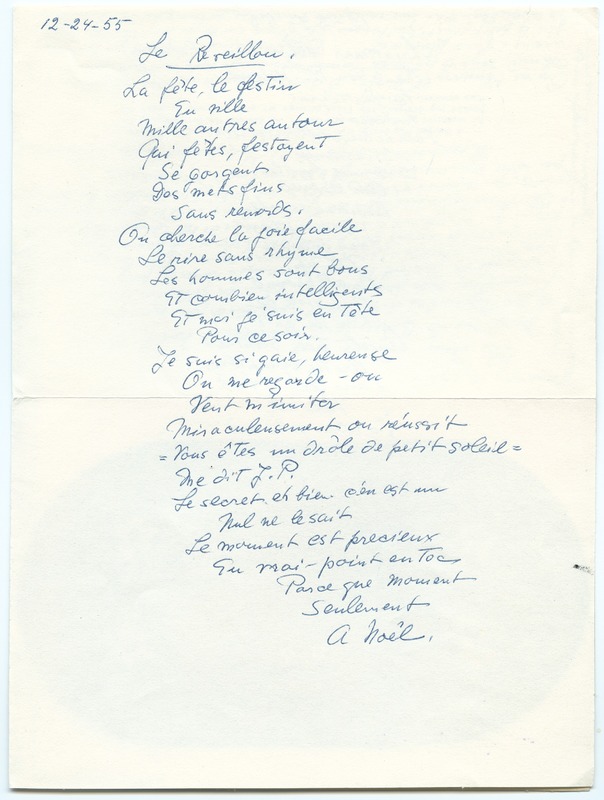 12-24-55
Le Reveillon.
La fête, le festin
En ville
Mille autres autour
Qui fêtes, festoyent
Se gorgent
Des mets fins
Sans remords.
On cherche la joie facile
Le rire sans rhyme
Les hommes sont bons
Et combien intelligents
Et moi je suis en Tête
Pour ce soir.
Je suis si gaie, heureuse
On me regarde - on
Veut m'imiter
Miraculeusement on réussit
= Vous êtes un drôle de petit soleil =
Me dit J.P.
Le secret, et bien c'en est un
Nul ne le sait
Le moment est precieux
En vrai - point en Toc
Parce que moment
Seulement
A Noël.